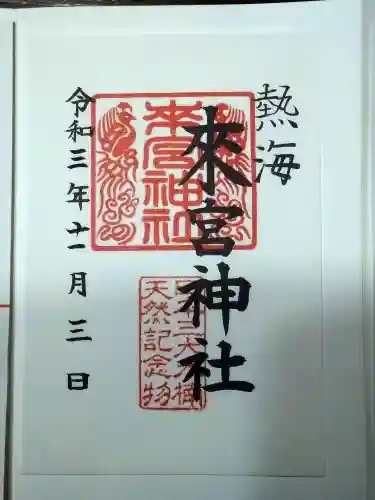 熱海
來宮神社
令和三年十一月三日
來宮神社
日本三大樟
天然記念物